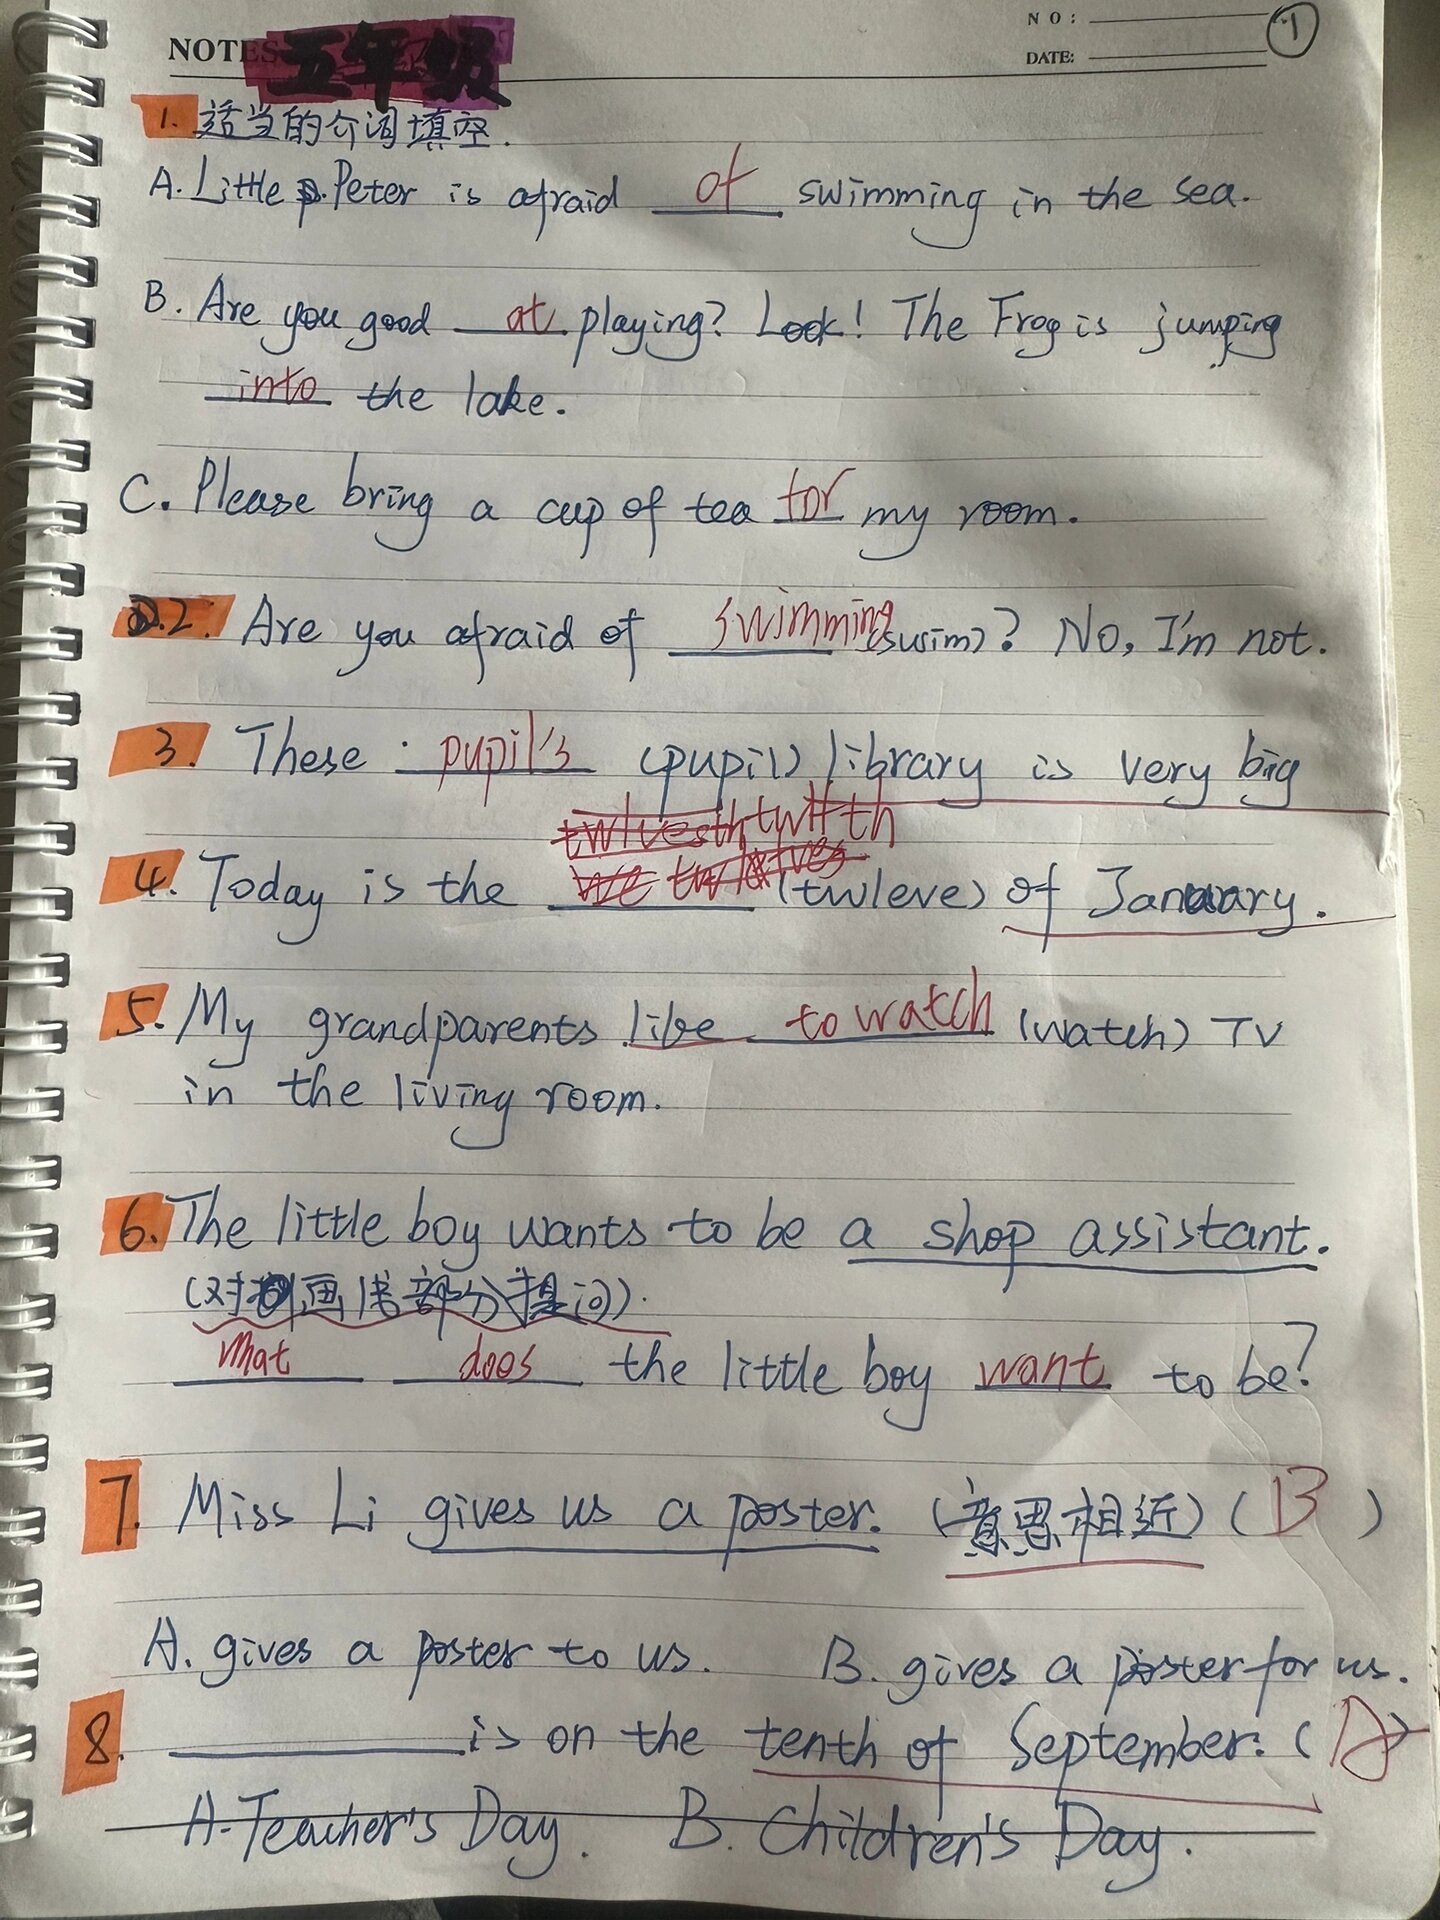 NOTES 五年级
NO:
DATE:
1
1. 适当的介词填空.
A. Little Peter is afraid of swimming in the sea.
B. Are you good at playing? Look! The Frog is jumping
into the lake.
C. Please bring a cup of tea for my room.
2. Are you afraid of swimming (swim)? No, I'm not.
3. These pupil's (pupil) library is very big
twlfth
4. Today is the (twleve) of January.
5. My grandparents like to watch (watch) TV
in the living room.
6. The little boy wants to be a shop assistant.
(对画线部分提问).
What does the little boy want to be?
7. Miss Li gives us a poster. (意思相近) (B)
A. gives a poster to us. B. gives a poster for us.
8. is on the tenth of September. (A)
A. Teacher's Day. B. Children's Day.